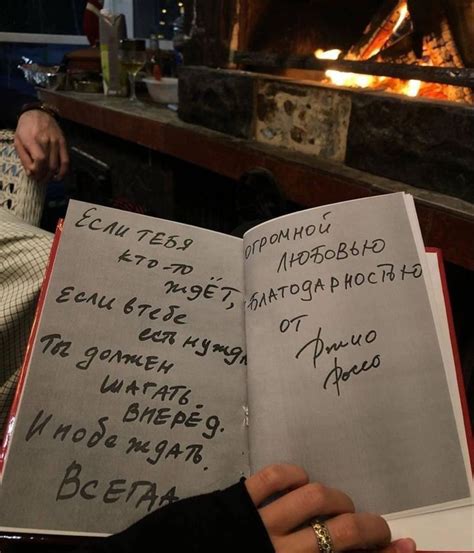 Если тебя
кто-то
ждёт,
Если в тебе
есть нужда
Ты должен
шагать
вперёд.
И побеждать.
Всегда
огромной
любовью
благодарностью
от
Джио
Россо